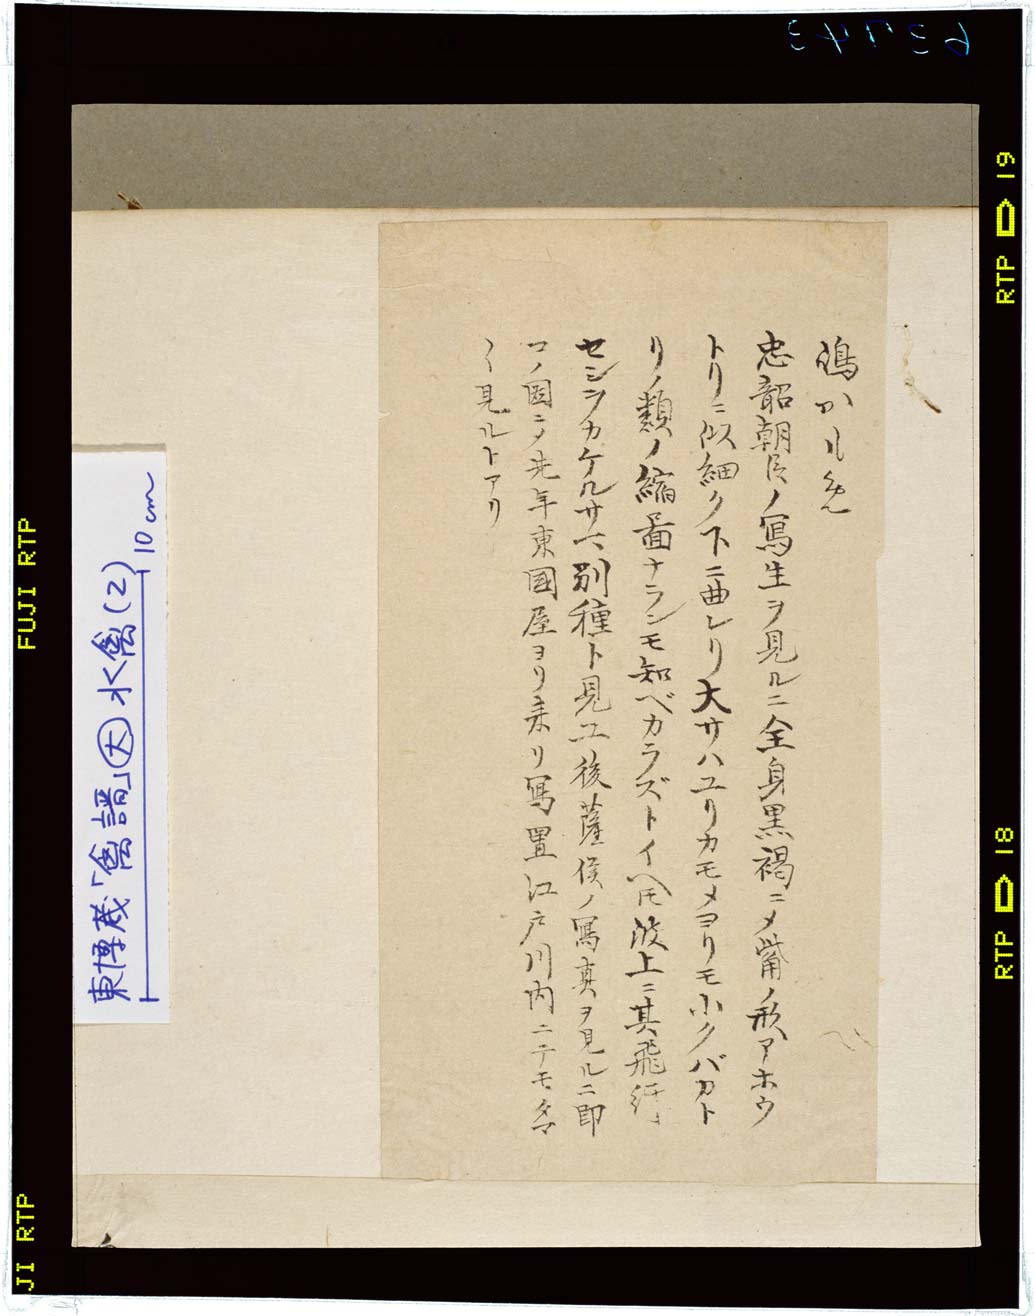 忠韶朝臣ノ寫生ヲ見ルニ全身黒褐ニメ觜ノ形アホウ
トリニ似細ク下ニ曲レリ大サハユリカモメヨリモ小クバカト
リノ類ノ縮圖ナランモ知ベカラズトイヘ𪜈波上ニ其飛行
セシヲカケルサマ別種ト見ユ後薩侯ノ寫真ヲ見ルニ即
コノ図ニメ先年東國屋ヨリ来リ寫置江戸川内ニテモタマ
〱見ルトアリ
東博蔵「禽譜」大 水禽(2)
10cm
63743
RTP 19
RTP 18
FUJI RTP
JI RTP